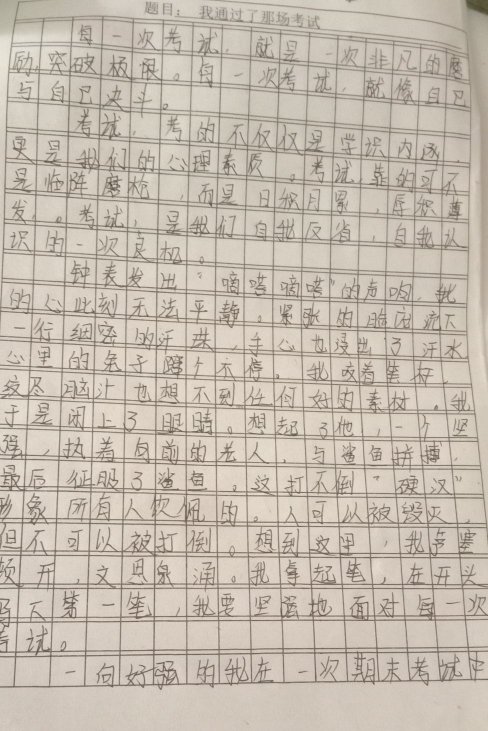 题目： 我通过了那场考试
每一次考试，就是一次非凡的磨
励，突破极限。每一次考试，就像自己
与自己决斗。
考试，考的不仅仅是学识内涵，
更是我们的心理素质。考试，靠的可不
是临阵磨枪，而是日积月累，厚积薄
发。考试，是我们自我反省，自我认
识的一次良机。
钟表发出“嘀嗒嘀嗒”的声响，我
的心此刻无法平静。紧张的脸庞流下
一行细密的汗珠，手心也浸出了汗水
心里的兔子蹦个不停。我咬着笔杆，
绞尽脑汁也想不到任何好的素材。我
于是闭上了眼睛。想起了他，一个坚
强，执着向前的老人，与鲨鱼拼搏，
最后征服了鲨鱼。这打不倒“硬汉”
形象所有人钦佩的。人可以被毁灭，
但不可以被打倒。想到这里，我茅塞
顿开，文思泉涌。我拿起笔，在开头
写下第一笔，我要坚强地面对每一次
考试。
一向好强的我在一次期末考试中